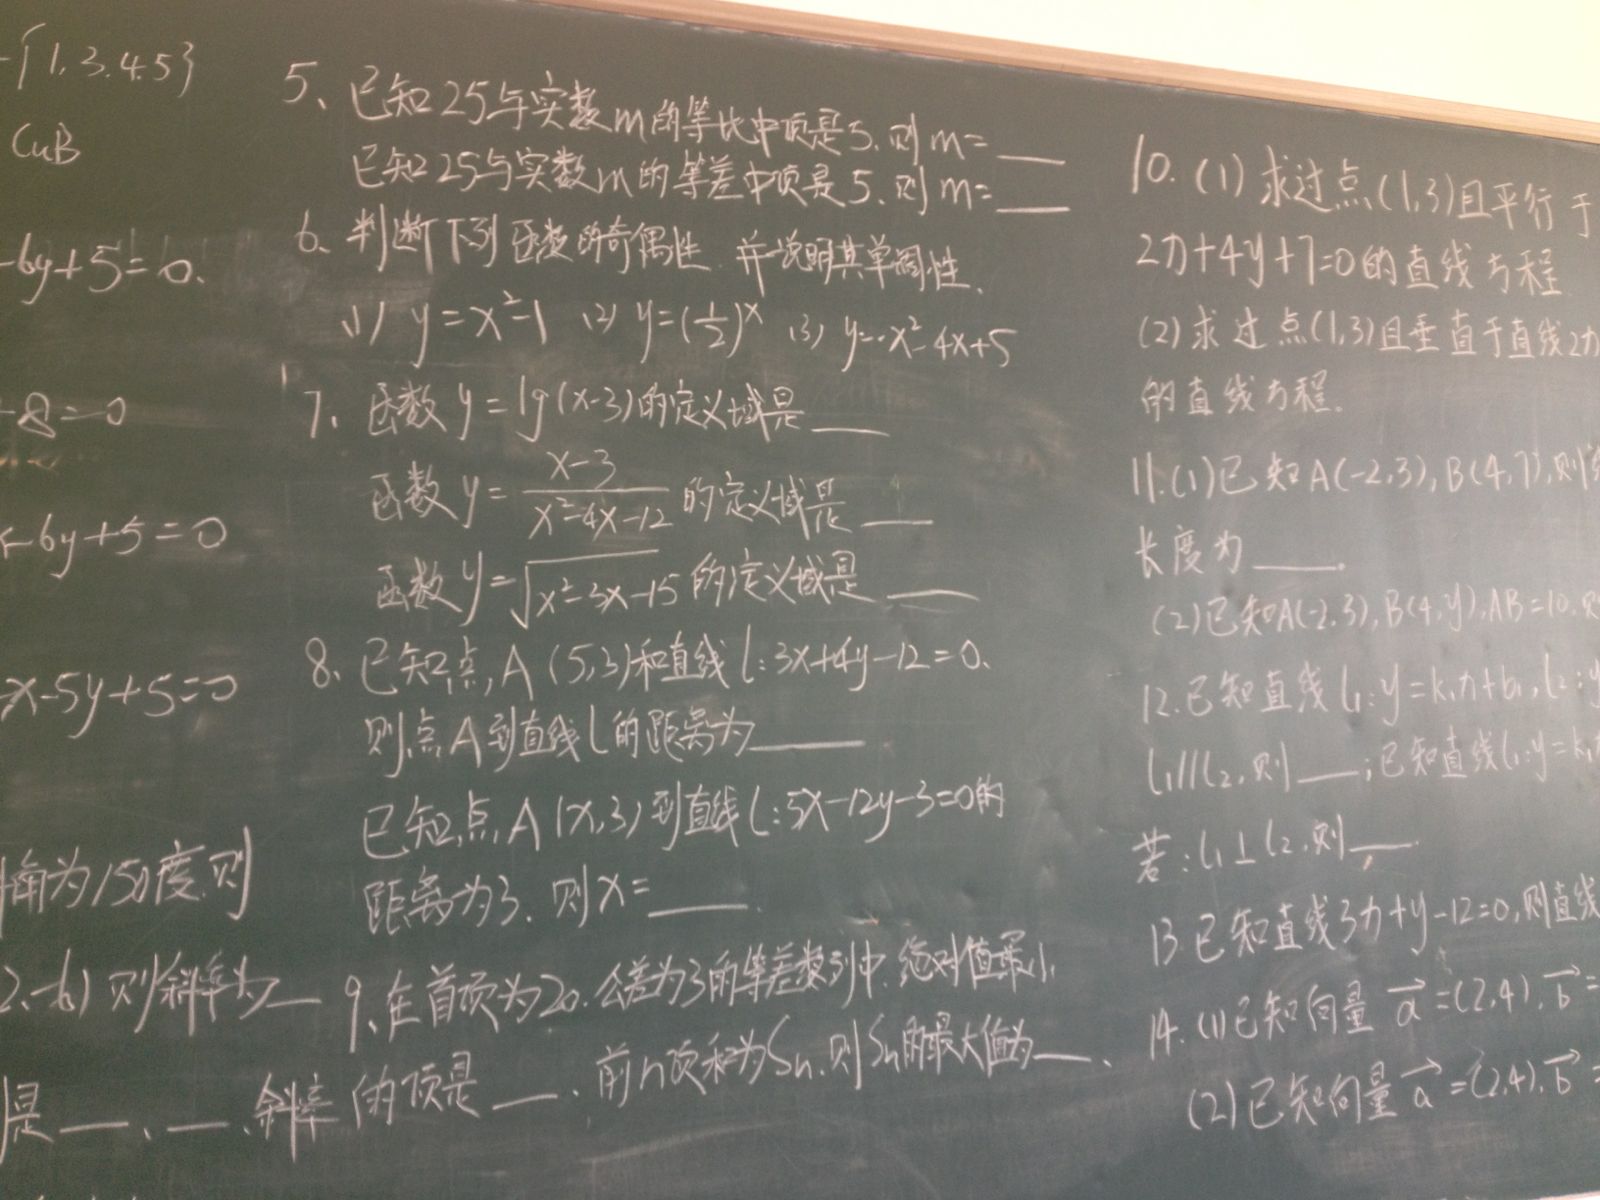 {1,3,4,5}
CuB
-6y+5=0.
-8=0
x-6y+5=0
-x-5y+5=0
角为150度,则
则斜率为__
是__、__、斜率
5、已知25与实数m的等比中项是5,则m=__
已知25与实数m的等差中项是5,则m=__
6、判断下列函数的奇偶性,并说明其单调性.
(1) y=x²-1 (2) y=(1/2)^x (3) y=-x²-4x+5
7、函数y=lg(x-3)的定义域是__
函数y=(x-3)/(x²-4x-12)的定义域是__
函数y=√(x²-3x-15)的定义域是__
8、已知点A(5,3)和直线l:3x+4y-12=0.
则点A到直线l的距离为__
已知点A(x,3)到直线l:5x-12y-3=0的
距离为3.则x=__.
9、在首项为20,公差为3的等差数列中,绝对值最小
的项是__.前n项和为Sn,则Sn的最大值为__.
10.(1)求过点(1,3)且平行于
2x+4y+7=0的直线方程
(2)求过点(1,3)且垂直于直线2x
的直线方程.
11.(1)已知A(-2,3),B(4,7),则
长度为__.
(2)已知A(-2,3),B(4,y),AB=10,则
12.已知直线l₁:y=k₁x+b₁,l₂:y
l₁//l₂,则__;已知直线l₁:y=k₁x
若:l₁⊥l₂,则__.
13 已知直线3x+y-12=0,则直线
14.(1)已知向量a⃗=(2,4),b⃗=
(2)已知向量a⃗=(2,4),b⃗=